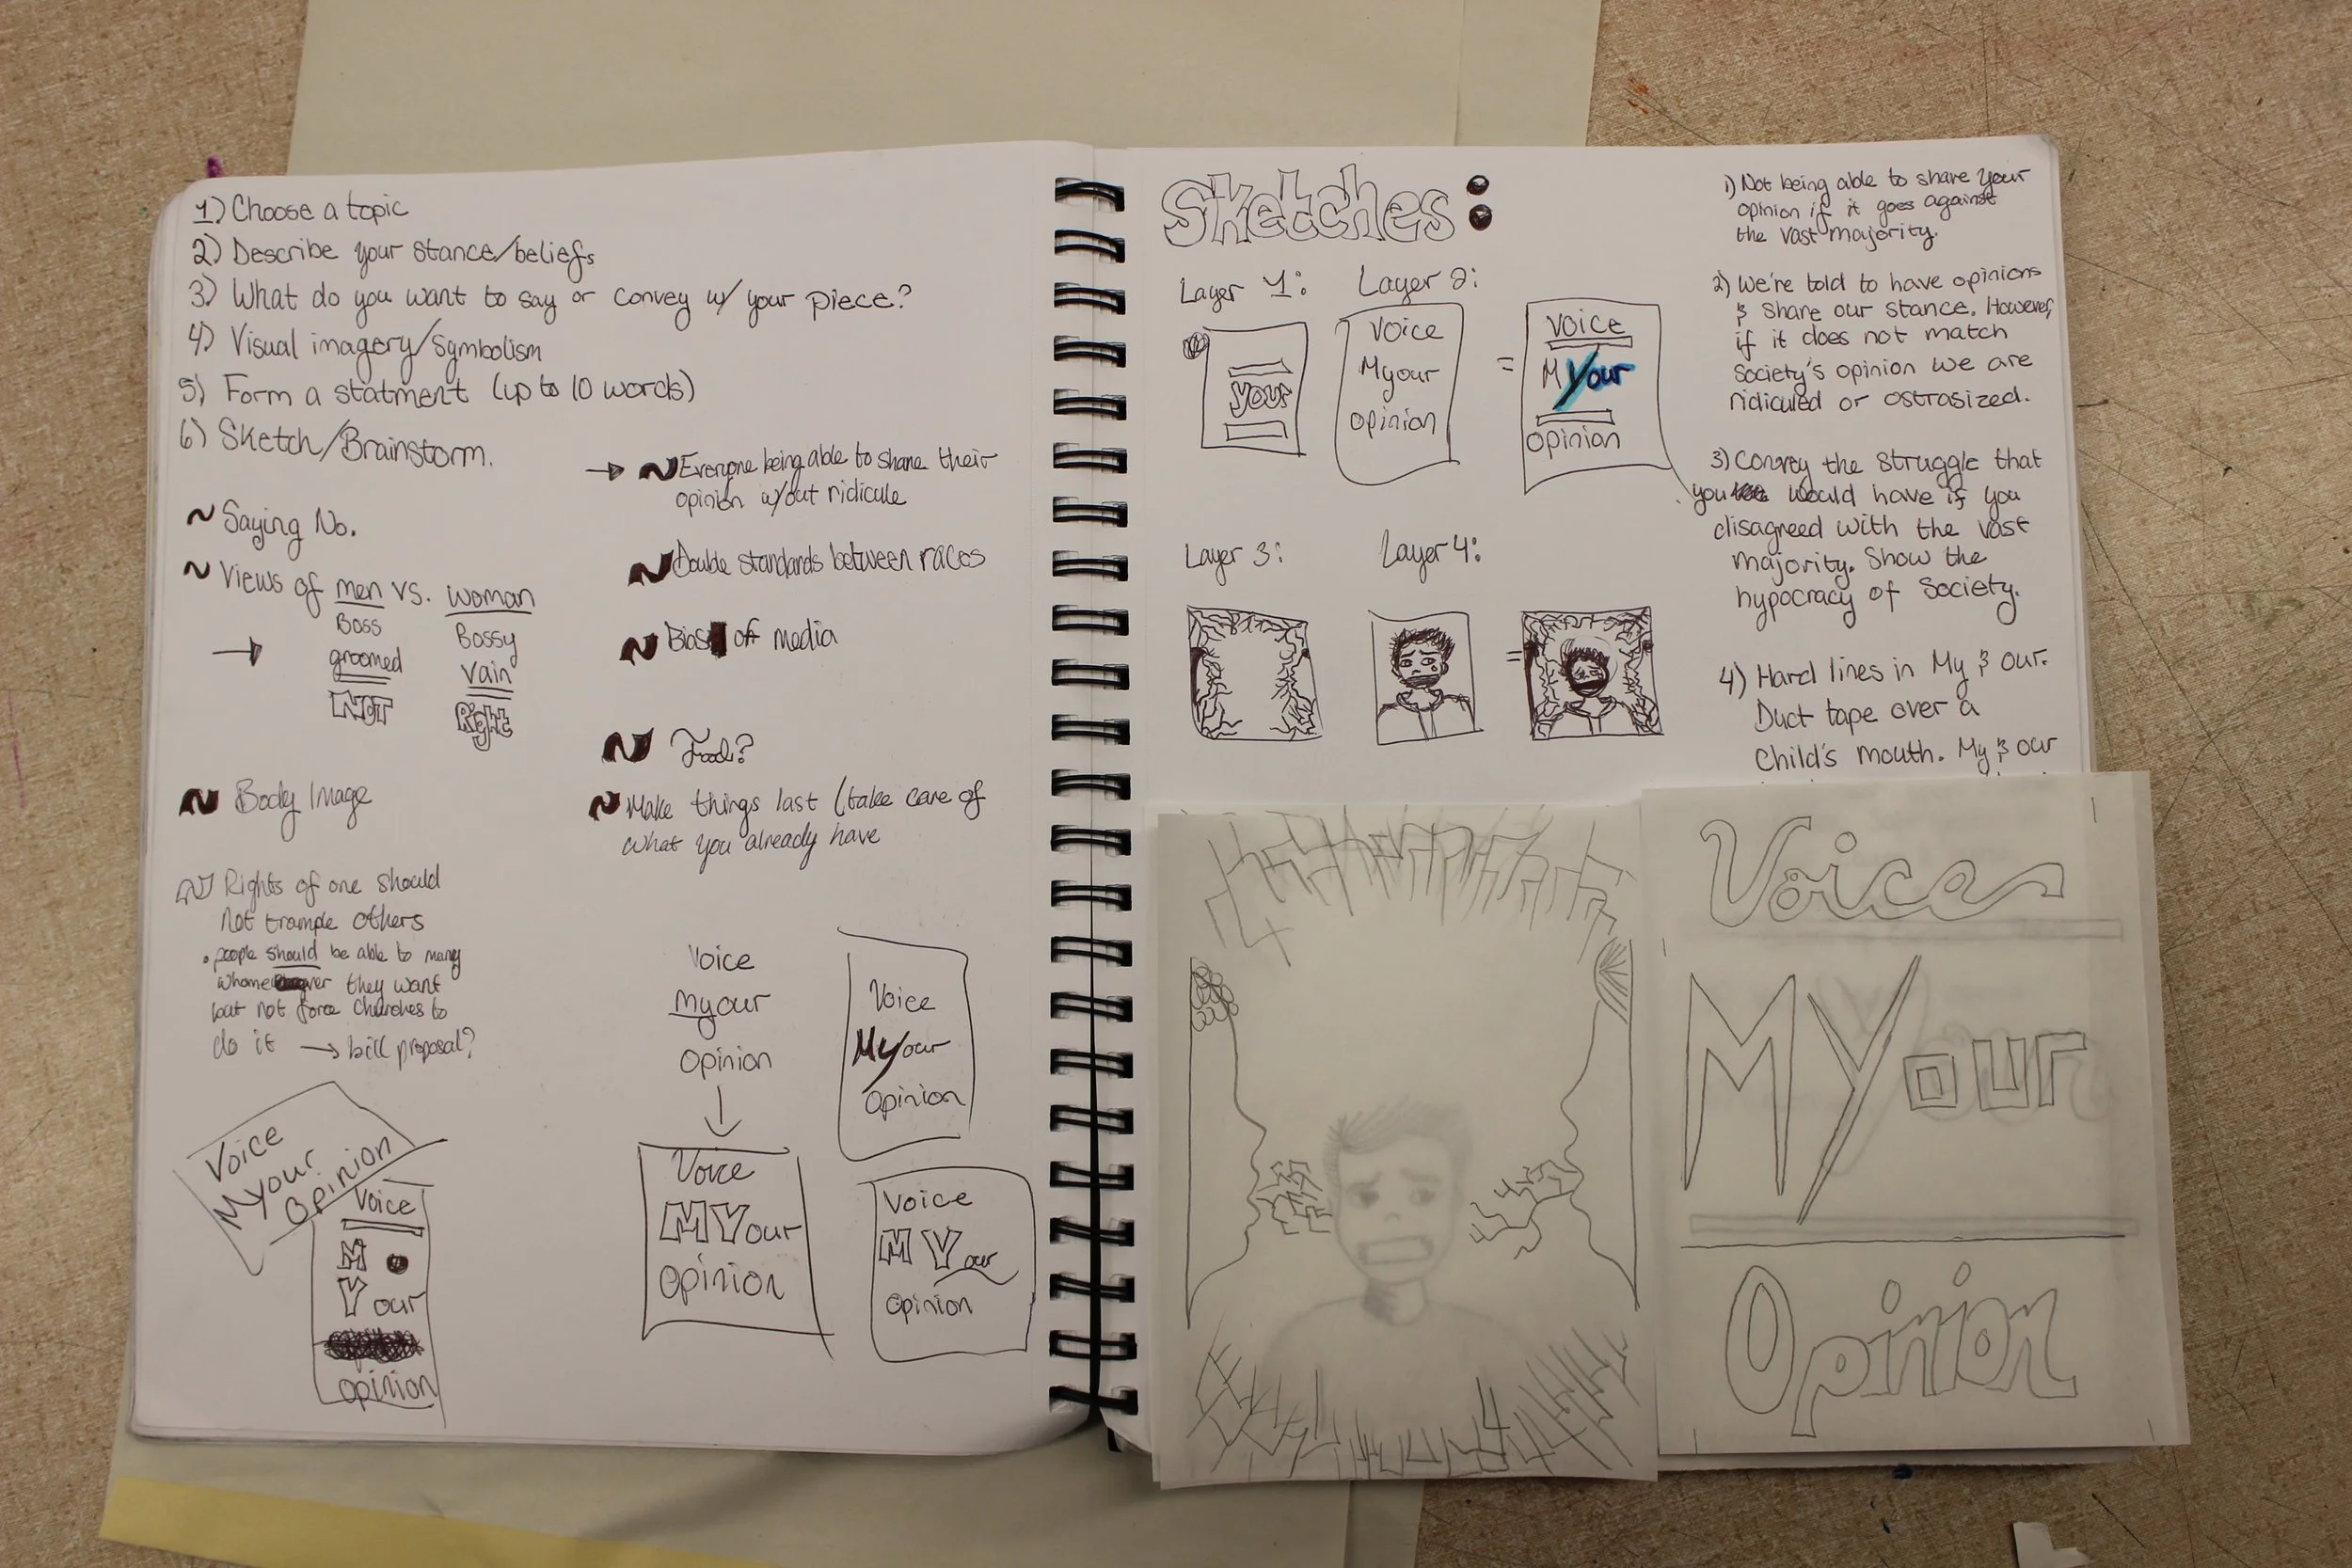 1) Choose a topic
2) Describe your stance/beliefs
3) What do you want to say or convey w/ your piece?
4) Visual imagery/Symbolism
5) Form a statment (up to 10 words)
6) Sketch/Brainstorm.
~ Saying No.
~ Views of men vs. woman
Boss Bossy
→ groomed vain
NOT Right
~ Body Image
~ Rights of one should
Not trample others
• people should be able to marry
whomever they want
but not force Churches to
do it → bill proposal?
→ ~ Everyone being able to share their
opinion w/out ridicule
~ Double standards between races
~ Bias of media
~ Food?
~ Make things last (take care of
what you already have
Voice
Myour
Opinion
Voice
MY
our
opinion
Voice
Myour
Opinion
Voice
MYour
Opinion
Voice
MYour
Opinion
Voice
MYour
Opinion
Sketches:
Layer 1: Layer 2:
your
Voice
Myour
opinion
=
Voice
MYour
Opinion
Layer 3: Layer 4:
=
1) Not being able to share your
opinion if it goes against
the vast majority.
2) We're told to have opinions
& share our stance. However,
if it does not match
Society's opinion we are
ridiculed or ostrasized.
3) Convey the struggle that
you would have if you
disagreed with the vast
majority. Show the
hypocracy of Society.
4) Hard lines in My & our.
Duct tape over a
Child's mouth. My & our
Voice
MYour
Opinion